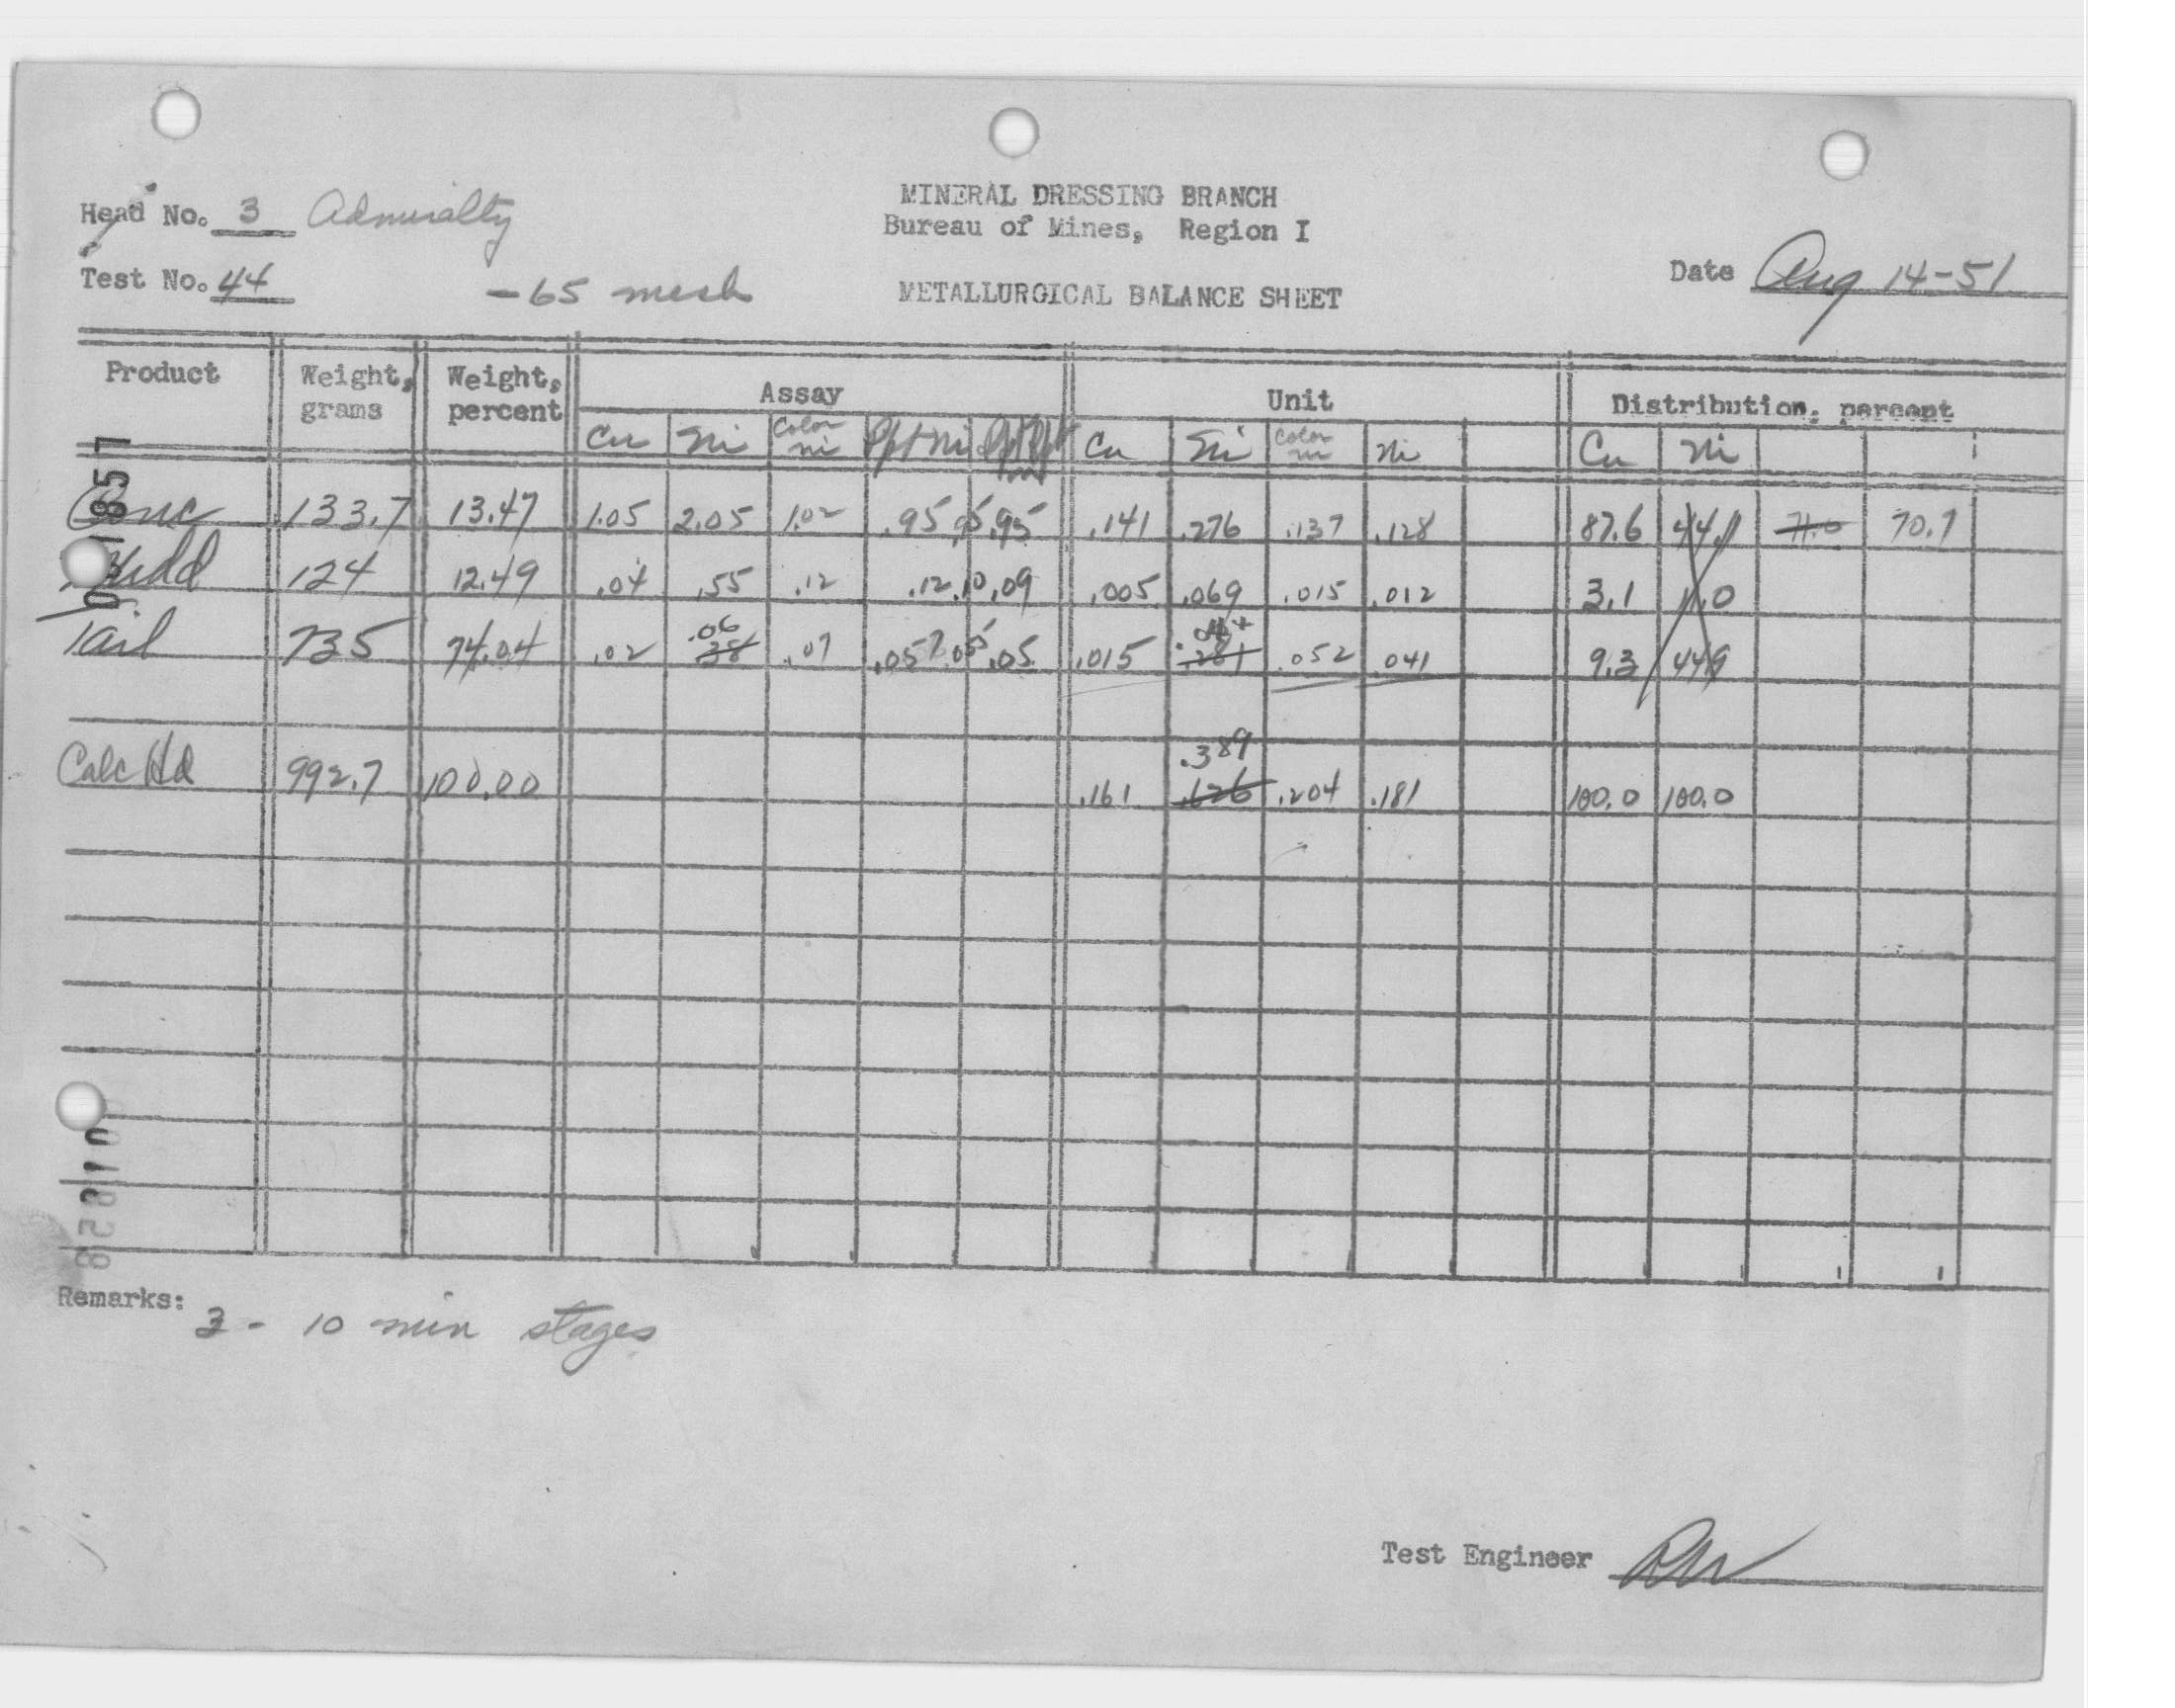 MINERAL DRESSING BRANCH
Head No. 3 Admiralty
Bureau of Mines, Region I
Test No. 44 -65 mesh
METALLURGICAL BALANCE SHEET
Date Aug 14-51
Product Weight, grams Weight, percent Assay Unit Distribution, percent
Cu Ni Color Ni Ppt Ni Cu Ni Color Ni Ni Cu Ni
Conc 133.7 13.47 1.05 2.05 1.02 .95 .95 .95 .141 .276 .137 .128 87.6 44.1 71.0 70.7
Midd 124 12.49 .04 .55 .12 .12 .10 .09 .005 .069 .015 .012 3.1 11.0
.06 .044
Tail 735 74.04 .02 .38 .07 .057 .055 .05 .015 .281 .052 .041 9.3 44.9
.389
Calc Hd 992.7 100.00 .161 .626 .204 .181 100.0 100.0
Remarks: 3 - 10 min stages
Test Engineer RW
001857
001858